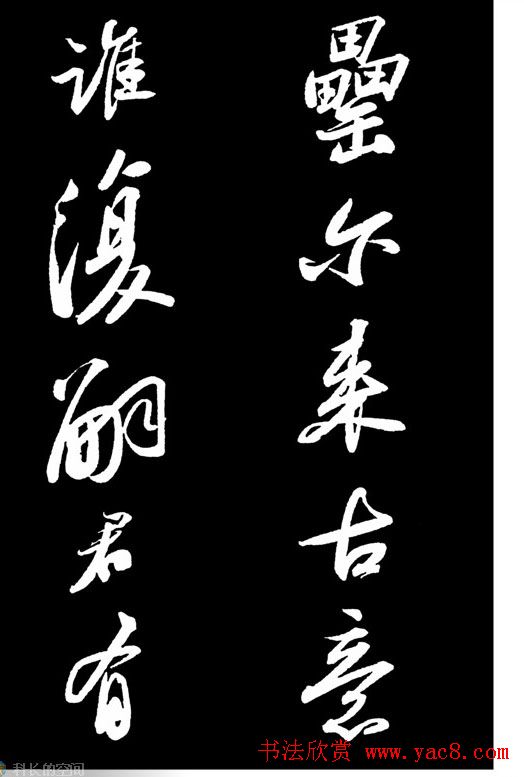 罍尔来古意
誰復嗣君有
书法欣赏 www.yac8.com
科长的空间